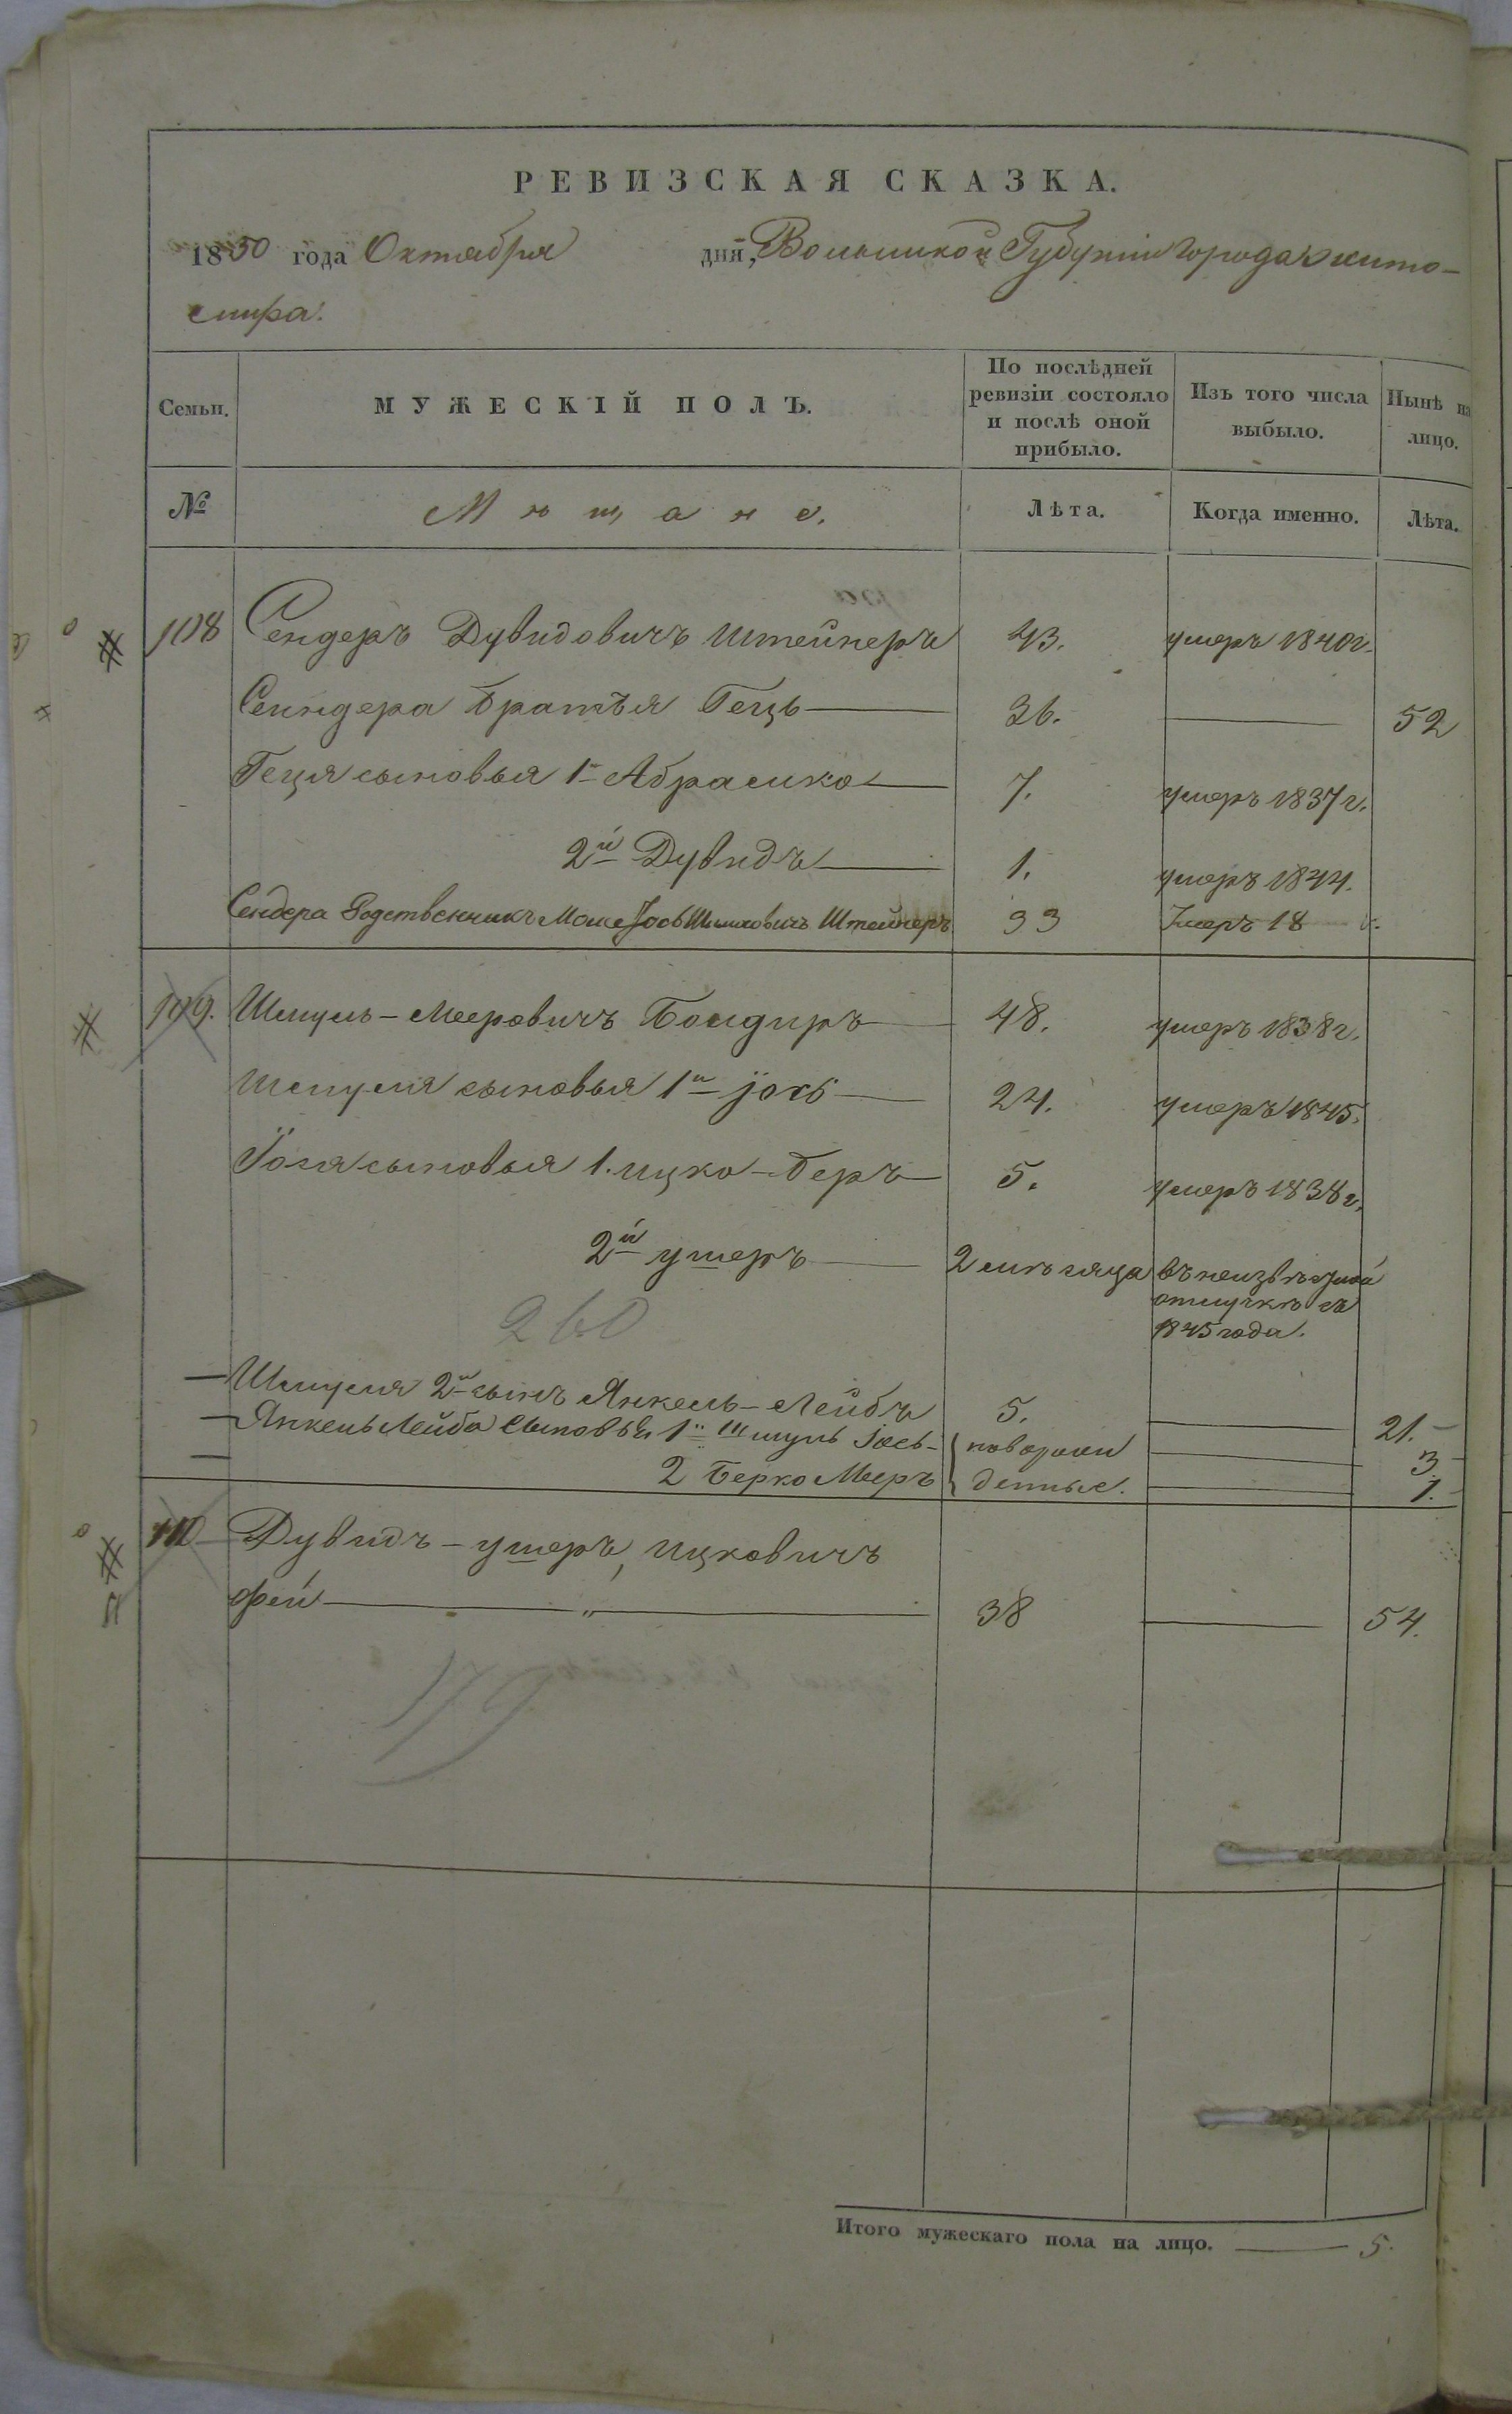 РЕВИЗСКАЯ СКАЗКА.
1850 года Октября дня, Волынской Губерніи города Жито-
мира.
Семьи. МУЖЕСКІЙ ПОЛЪ. По послѣдней ревизіи состояло и послѣ оной прибыло. Изъ того числа выбыло. Нынѣ на лицо.
№ Мѣщане. Лѣта. Когда именно. Лѣта.
108 Сендеръ Дувидовичъ Штейнеръ 43. умеръ 1840 г.
Сендера братья Гецъ 36. 52
Геця сыновья 1й Абрамко 7. умеръ 1837 г.
2й Дувидъ 1. умеръ 1844.
Сендера Родственникъ Моше Іось Шмиловичъ Штейнеръ 33 Умеръ 18 г.
109. Шмуль-Мееровичъ Бондиръ 48. умеръ 1838 г.
Шмуля сыновья 1й Іось 24. умеръ 1845.
Іося сыновья 1. Ицко-Беръ 5. умеръ 1838 г.
2й Ушеръ 2 мѣсяца въ неизвѣстной
отлучкѣ съ
1845 года.
260
Шмуля 2й сынъ Янкель-Лейбъ 5. 21.
Янкель Лейба Сыновья 1й Шмуль Іось новорож 3
2 Берко Мееръ денные. 1.
110 Дувидъ-Ушеръ, Ицковичъ
Фей 38 54.
Итого мужескаго пола на лицо. 5.